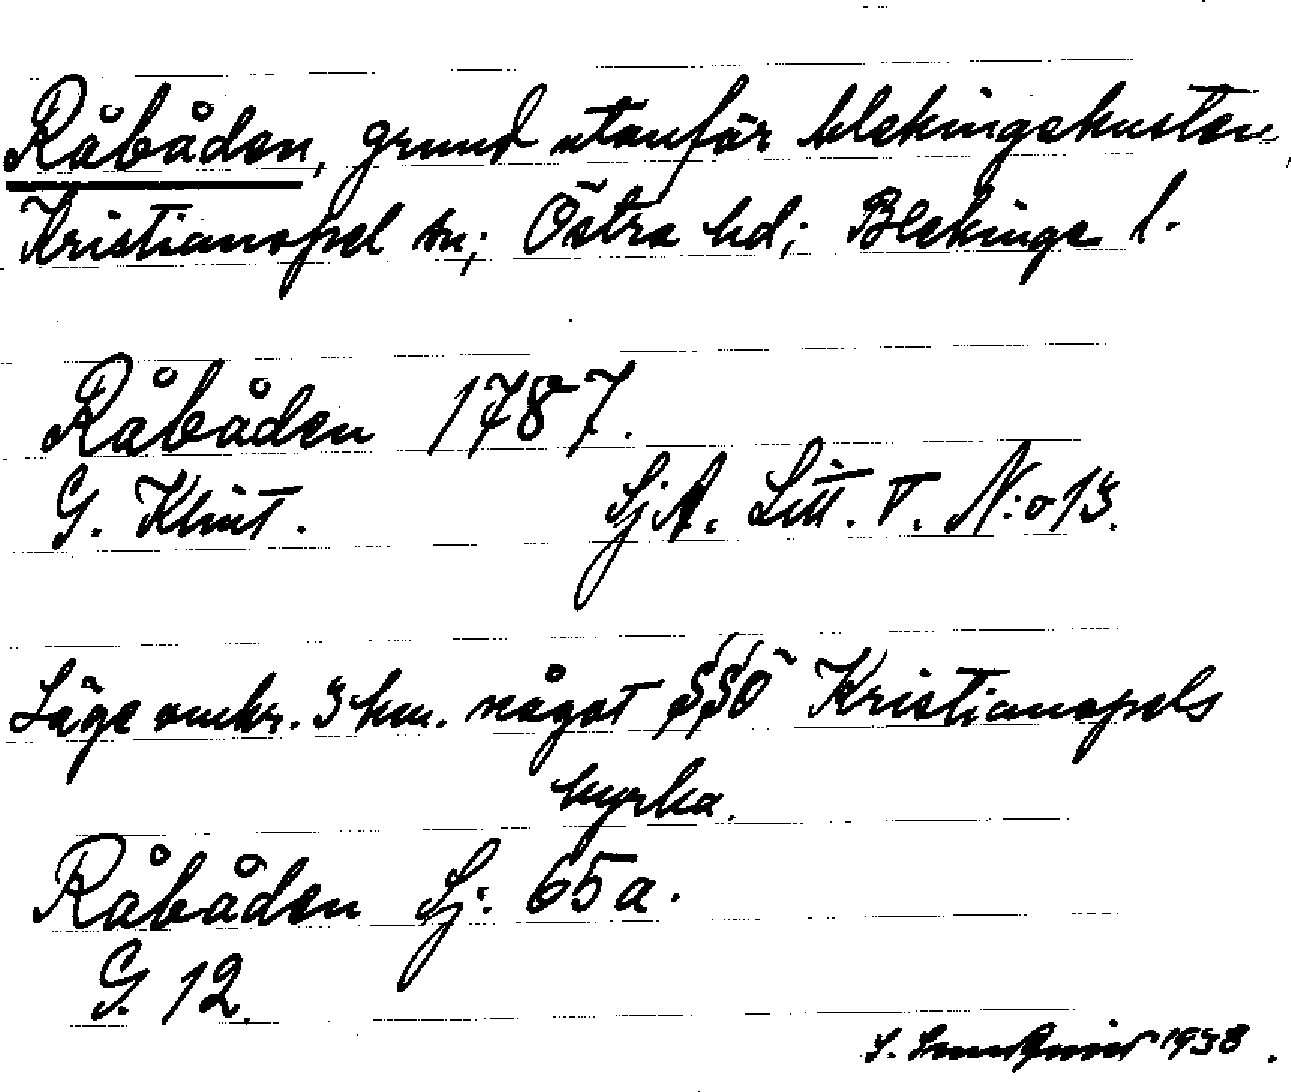 Råbåden, grund utanför blekingekusten,
Kristianopel sn; Östra hd; Blekinge l.
Råbåden 1787.
G. Klint. SjA. Litt. V. N:o 13.
Läge omkr. 3 km. något SSÖ Kristianopels
kyrka.
Råbåden Sj: 65a.
G. 12.
S. 1938.